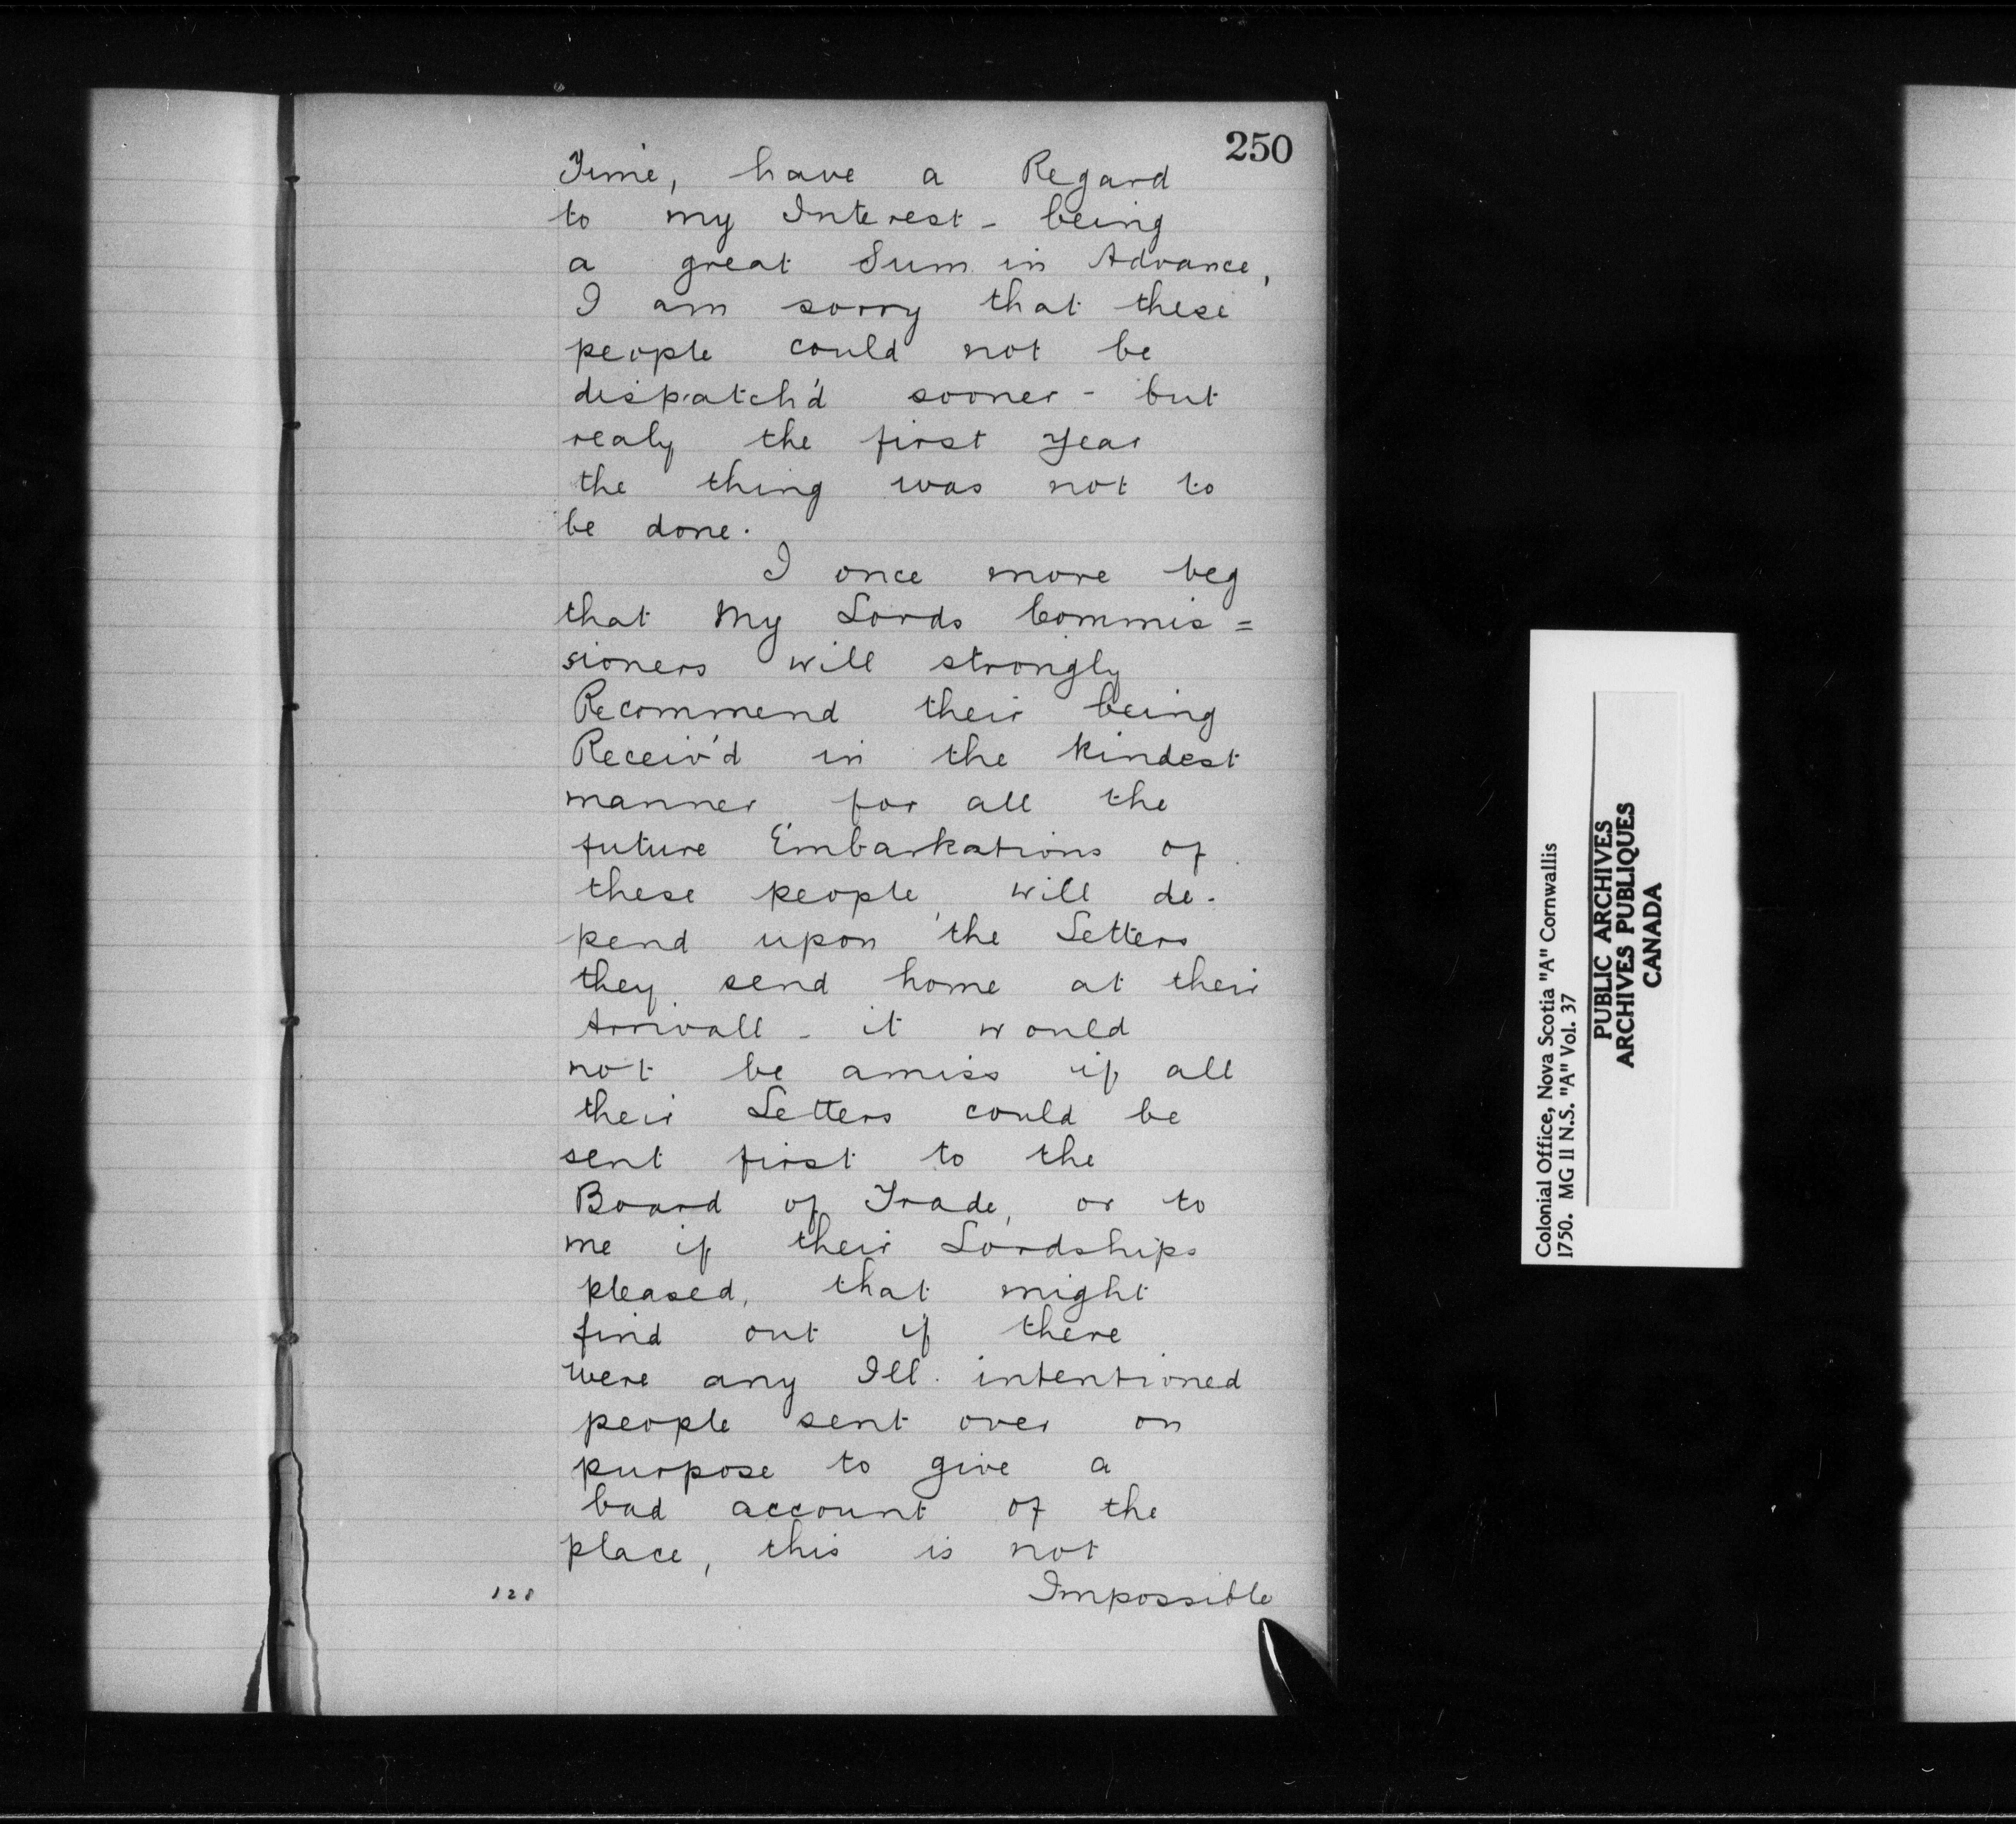 250
Time, have a Regard
to my Interest - being
a great Sum in Advance,
I am sorry that these
people could not be
dispatch'd sooner - but
realy the first year
the thing was not to
be done.
I once more beg
that My Lords Commis=
sioners will strongly
Recommend their being
Receiv'd in the kindest
manner for all the
future Embarkations of
these people will de-
pend upon the Letters
they send home at their
Arrivall - it would
not be amiss if all
their Letters could be
sent first to the
Board of Trade, or to
me if their Lordships
pleased, that might
find out if there
were any Ill intentioned
people sent over on
purpose to give a
bad account of the
place, this is not
128
Impossible
Colonial Office, Nova Scotia "A" Cornwallis
1750. MG 11 N.S. "A" Vol. 37
PUBLIC ARCHIVES
ARCHIVES PUBLIQUES
CANADA